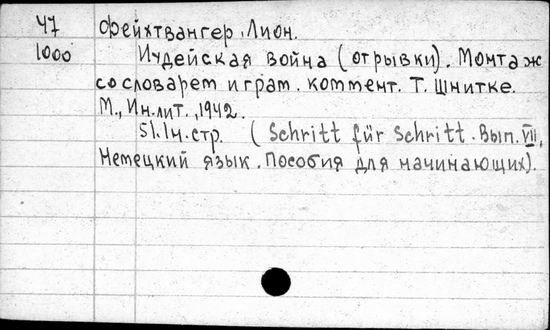 47 Фейхтвангер, Лион.
1000 Иудейская война (отрывки). Монтаж
со словарем и грам. коммент. Т. Шнитке.
М., Ин.лит., 1942.
51. 1н. стр. (Schritt für Schritt. Вып. VII,
Немецкий язык. Пособия для начинающих).